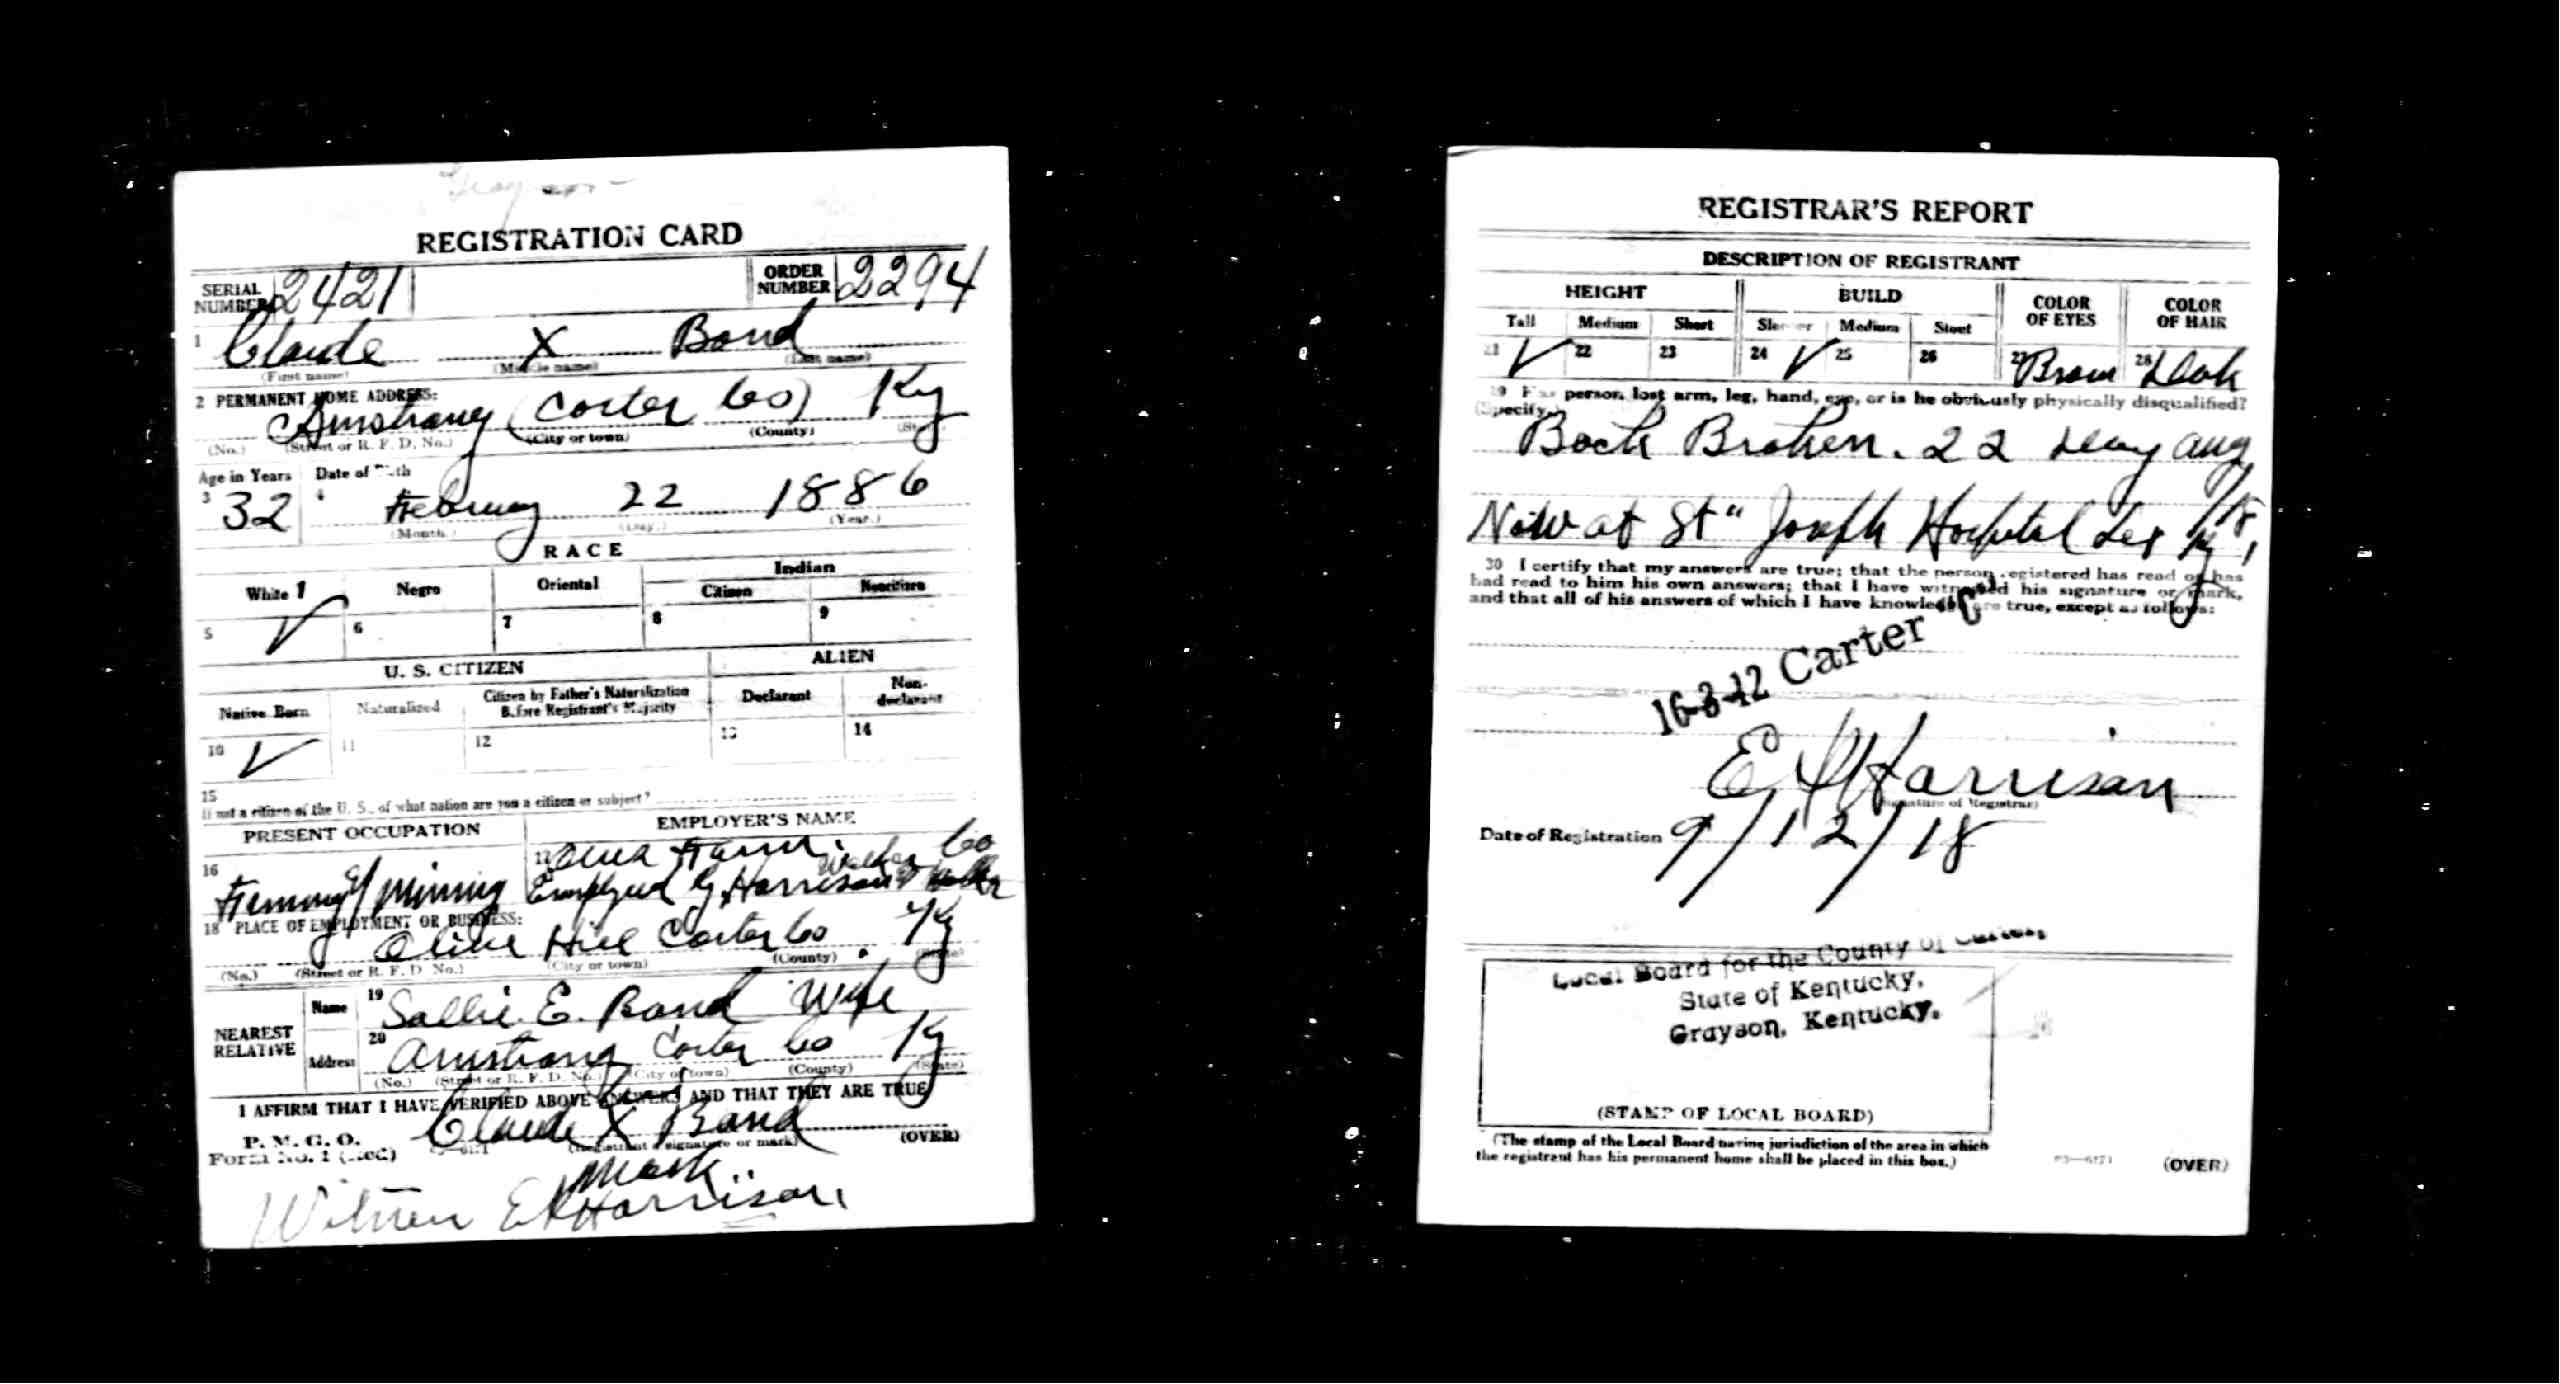 REGISTRATION CARD
SERIAL NUMBER 2421 ORDER NUMBER 2294
1 Claude X Bond
(First name) (Middle name) (Last name)
2 PERMANENT HOME ADDRESS:
Armstrong (Carter Co) Ky
(No.) (Street or R. F. D. No.) (City or town) (County)
Age in Years Date of Birth
3 32 4 February 22 1886
(Month.) (Day.) (Year.)
RACE
White Negro Oriental Indian
Citizen Noncitizen
5 ✓ 6 7 8 9
U. S. CITIZEN ALIEN
Native Born Naturalized Citizen by Father's Naturalization Before Registrant's Majority Declarant Non-declarant
10 ✓ 11 12 13 14
15
If not a citizen of the U. S., of what nation are you a citizen or subject?
PRESENT OCCUPATION EMPLOYER'S NAME
16 17 Farm. Co
Mining Employed Harrison
18 PLACE OF EMPLOYMENT OR BUSINESS:
Olive Hill Carter Co. Ky
(No.) (Street or R. F. D. No.) (City or town) (County) (State)
NEAREST RELATIVE
Name 19 Sallie. E. Bond Wife
Address 20 Armstrong Carter Co Ky
(No.) (Street or R. F. D. No.) (City or town) (County) (State)
I AFFIRM THAT I HAVE VERIFIED ABOVE ANSWERS AND THAT THEY ARE TRUE
P. M. G. O.
Form No. 1 (Red) Claude X Bond (OVER)
(Registrant's signature or mark)
Mark.
Witness E Harrison
REGISTRAR'S REPORT
DESCRIPTION OF REGISTRANT
HEIGHT BUILD COLOR OF EYES COLOR OF HAIR
Tall Medium Short Slender Medium Stout
21 ✓ 22 23 24 ✓ 25 26 27 Brown 28 Dark
29 Has person lost arm, leg, hand, eye, or is he obviously physically disqualified?
(Specify.)
Back Broken. 22 day Aug
Now at St" Joseph Hospital Lex Ky
30 I certify that my answers are true; that the person registered has read or has
had read to him his own answers; that I have witnessed his signature or mark,
and that all of his answers of which I have knowledge are true, except as follows:
16-3-12 Carter
E Harrison
(Signature of Registrar)
Date of Registration 9/12/18
Local Board for the County of Carter,
State of Kentucky,
Grayson, Kentucky.
(STAMP OF LOCAL BOARD)
(The stamp of the Local Board having jurisdiction of the area in which
the registrant has his permanent home shall be placed in this box.)
(OVER)